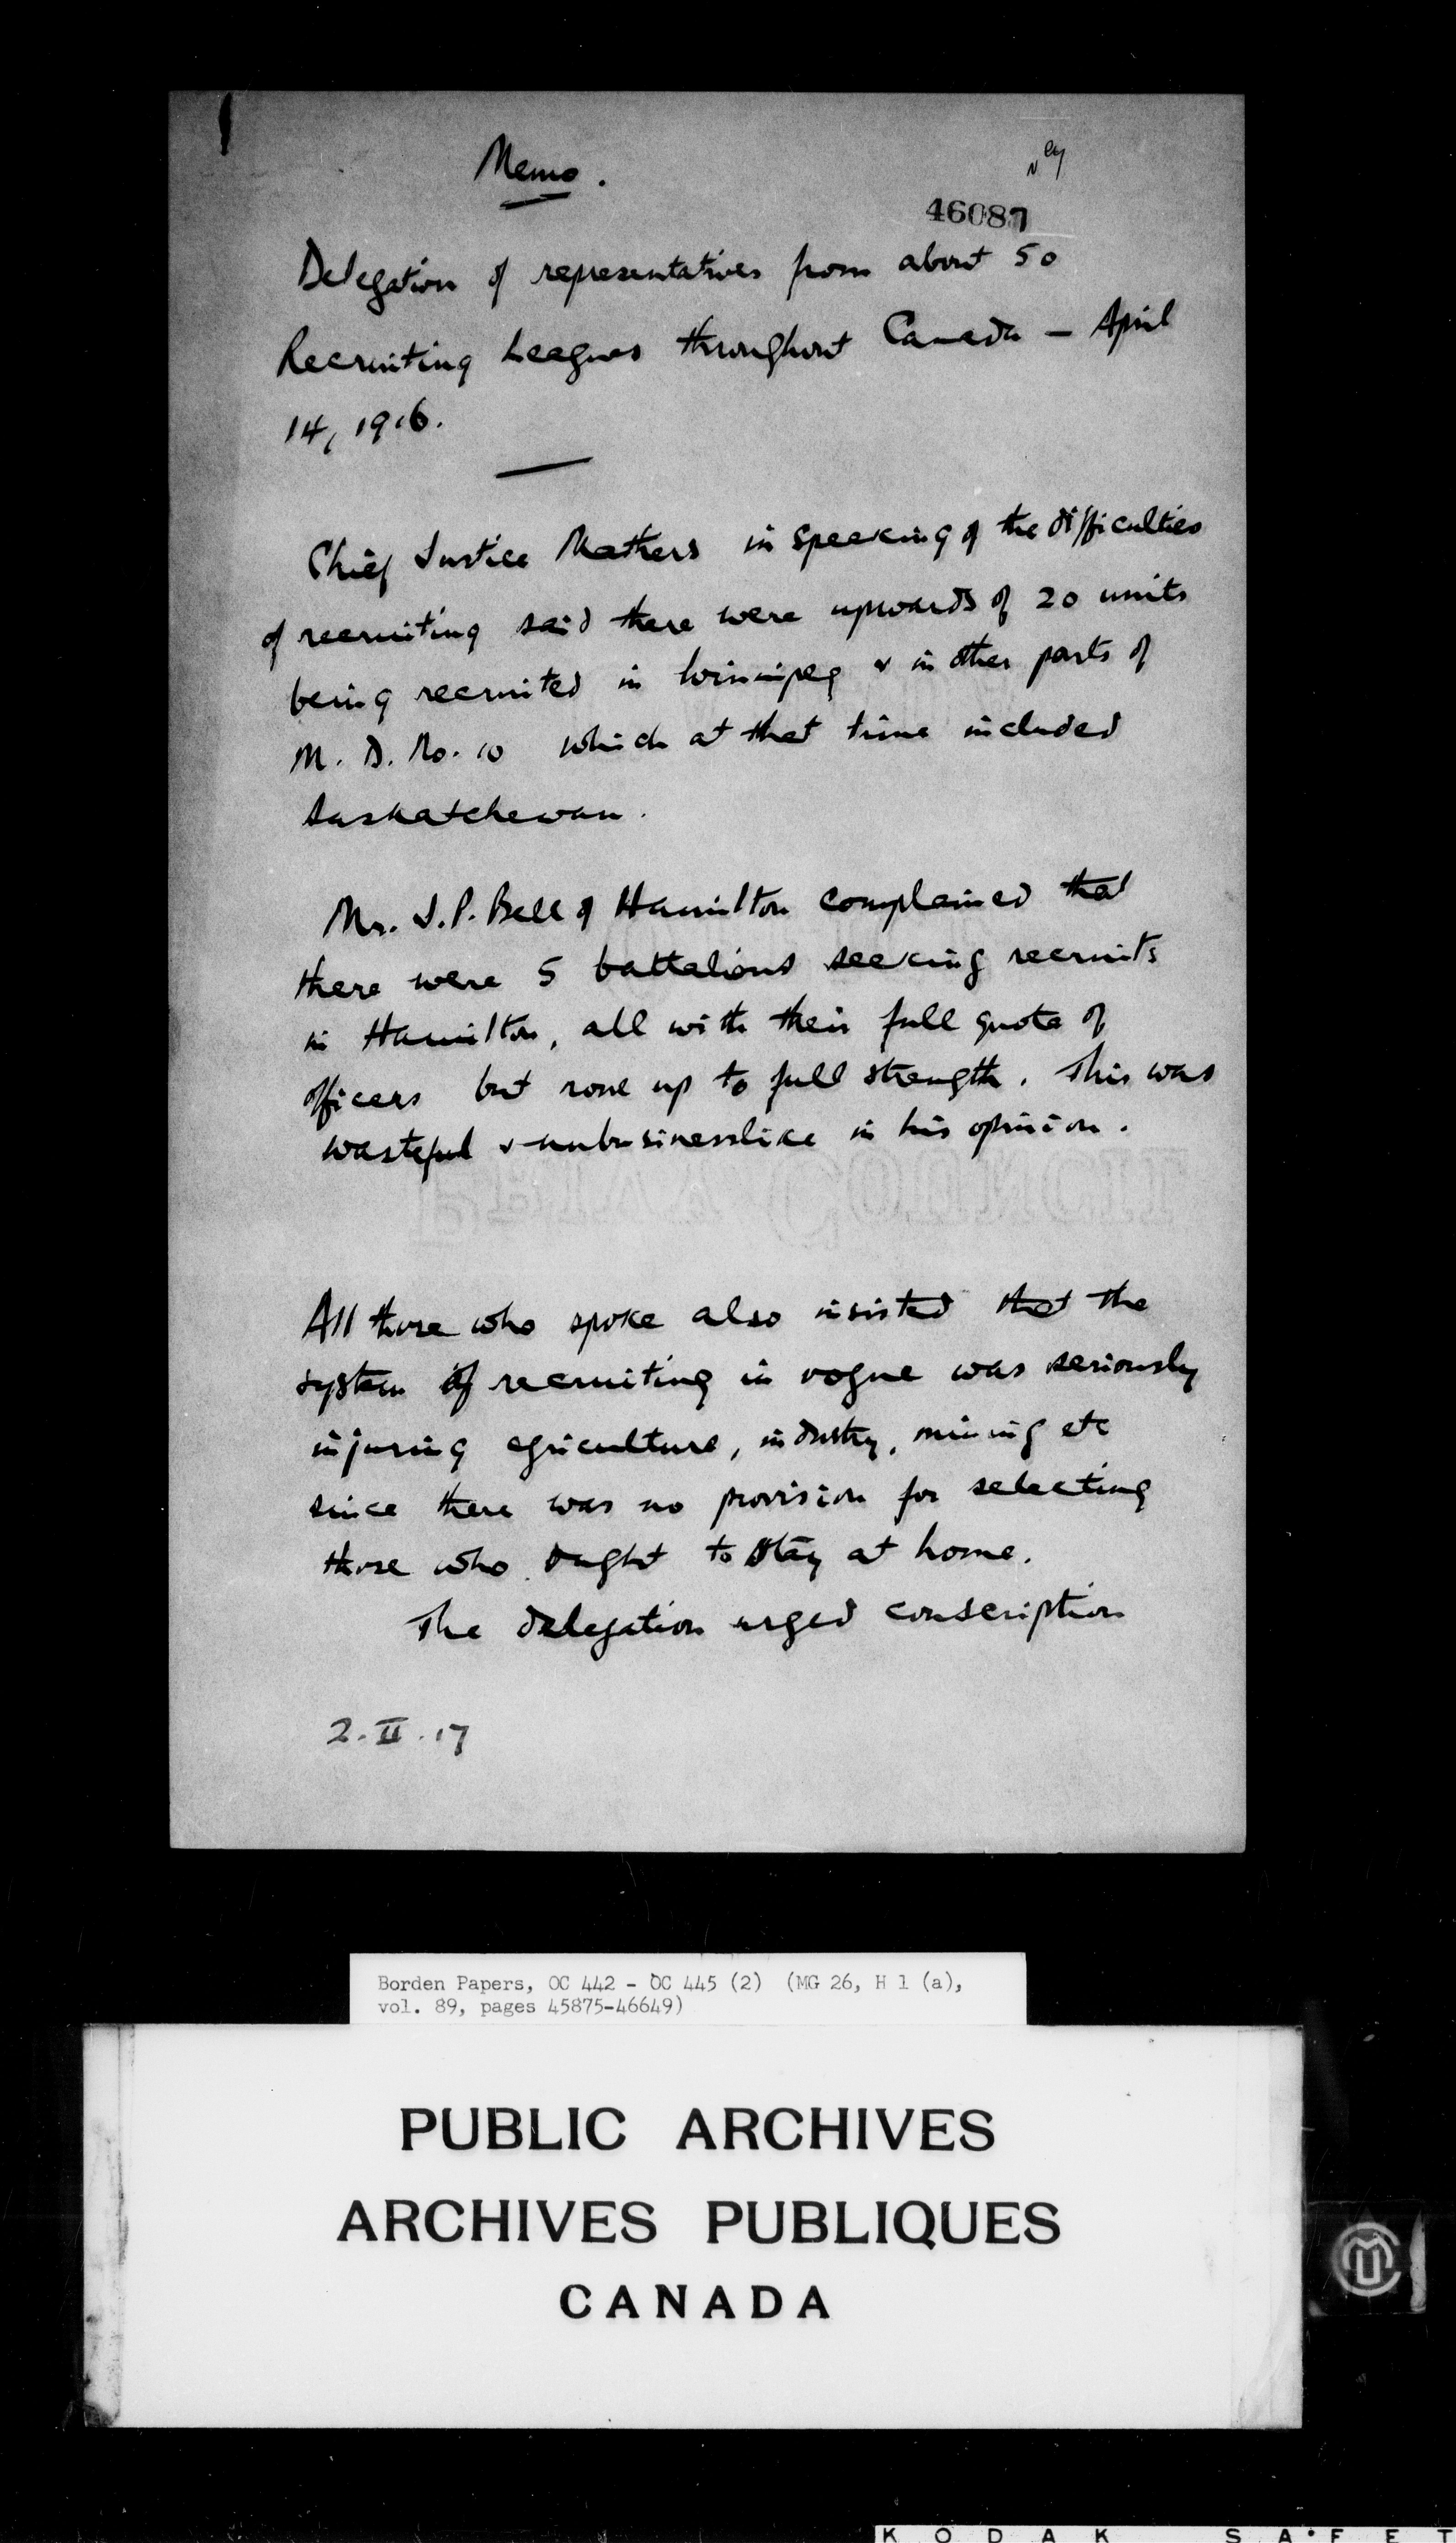 Memo.
46087
Delegation of representatives from about 50
Recruiting Leagues throughout Canada — April
14, 1916.
Chief Justice Mathers in speaking of the difficulties
of recruiting said there were upwards of 20 units
being recruited in Winnipeg & in other parts of
M. D. No. 10 which at that time included
Saskatchewan.
Mr. J. P. Bell of Hamilton complained that
there were 5 battalions seeking recruits
in Hamilton, all with their full quota of
officers but none up to full strength. This was
wasteful & unbusinesslike in his opinion.
PRIVY COUNCIL
All those who spoke also insisted that the
system of recruiting in vogue was seriously
injuring agriculture, industry, mining etc
since there was no provision for selecting
those who ought to stay at home.
The delegation urged conscription
2.II.17
Borden Papers, OC 442 - OC 445 (2) (MG 26, H 1 (a),
vol. 89, pages 45875-46649)
PUBLIC ARCHIVES
ARCHIVES PUBLIQUES
CANADA
KODAK SAFET